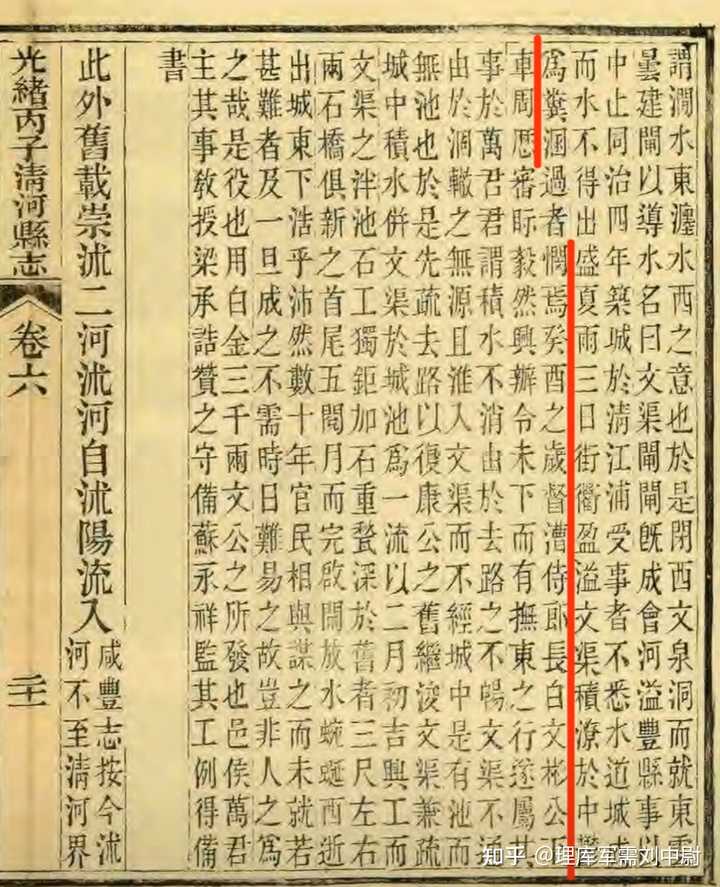 謂澗水東瀍水西之意也於是閉西文泉洞而就東重
曇建閘以導水名曰文渠閘閘既成會河溢豐縣事以
中止同治四年築城於清江浦受事者不悉水道城
而水不得出盛夏雨三日街衢盈溢文渠積潦於中
爲糞溷過者憫焉癸酉之歲督漕侍郎長白文彬公下
車周歷審眎毅然興辦令未下而有撫東之行遂屬其
事於萬君君謂積水不消由於去路之不暢文渠不通
由於涸轍之無源且淮入文渠而不經城中是有池而
無池也於是先疏去路以復康公之舊繼浚文渠兼疏
城中積水併文渠於城池爲一流以二月初吉興工而
文渠之泮池石工獨鉅加石重甃深於舊者三尺左右
兩石橋俱新之首尾五閱月而完啟閘放水蜿蜒西逝
出城東下浩乎沛然數十年官民相與謀之而未就若
甚難者及一旦成之不需時日難易之故豈非人之爲
之哉是役也用白金三千兩文公之所發也邑侯萬君
主其事敎授梁承誥贊之守備蘇永祥監其工例得備
書
此外舊載崇沭二河沭河自沭陽流入
咸豐志按今沭
河不至清河界
光緒丙子清河縣志
卷六
二十一
知乎 @理库军需刘中尉